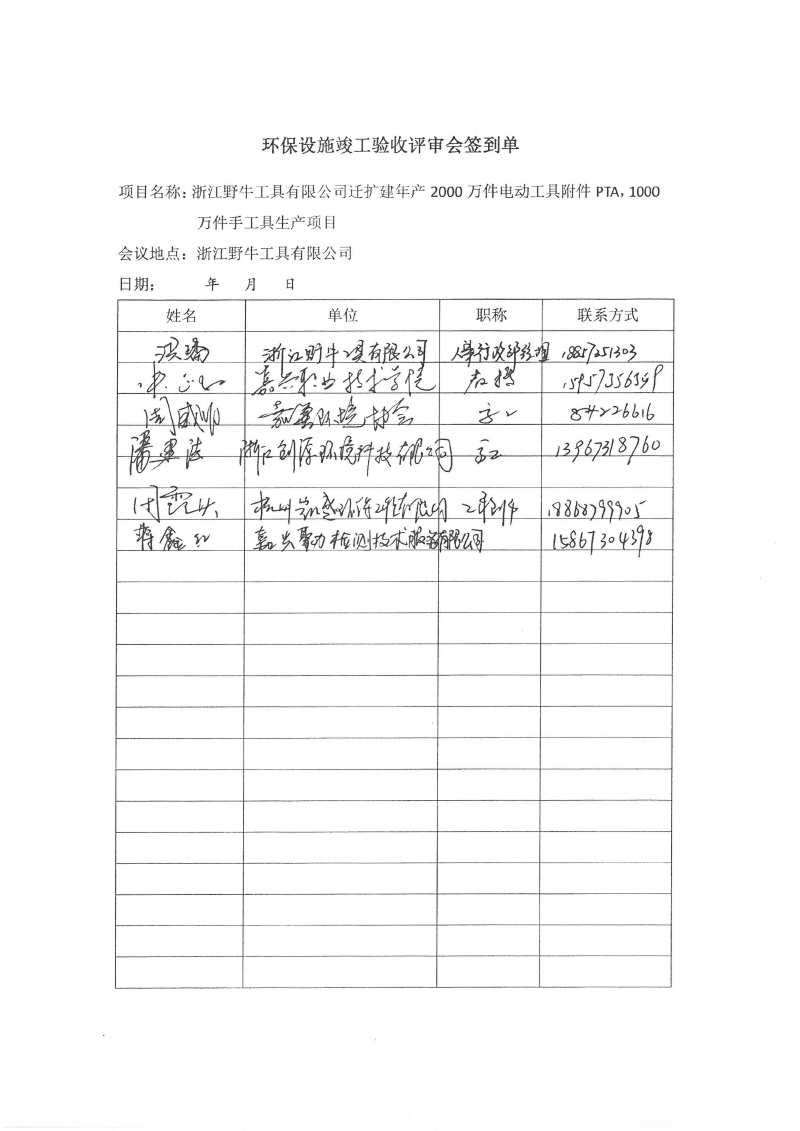 环保设施竣工验收评审会签到单
项目名称：浙江野牛工具有限公司迁扩建年产 2000 万件电动工具附件 PTA，1000
万件手工具生产项目
会议地点：浙江野牛工具有限公司
日期： 年 月 日
姓名 单位 职称 联系方式
浙江野牛工具有限公司 人事行政部经理 18857251303
嘉兴职业技术学院
周咸 嘉兴环境协会 高工 84226616
潘 浙江创源环境科技有限公司 高工 13967318760
杭州 有限公司 工程师 18868799905
蒋鑫红 嘉兴聚力检测技术服务有限公司 15867304398